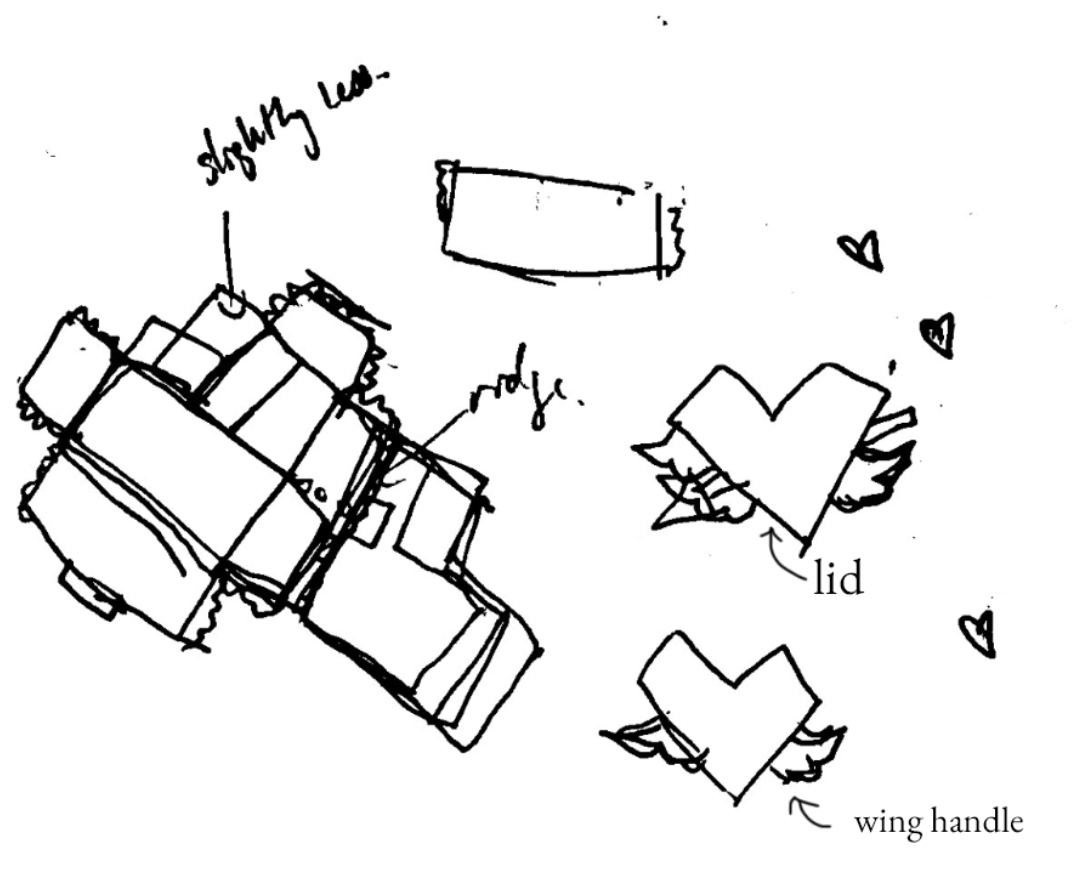 slightly less.
ridge.
lid
wing handle